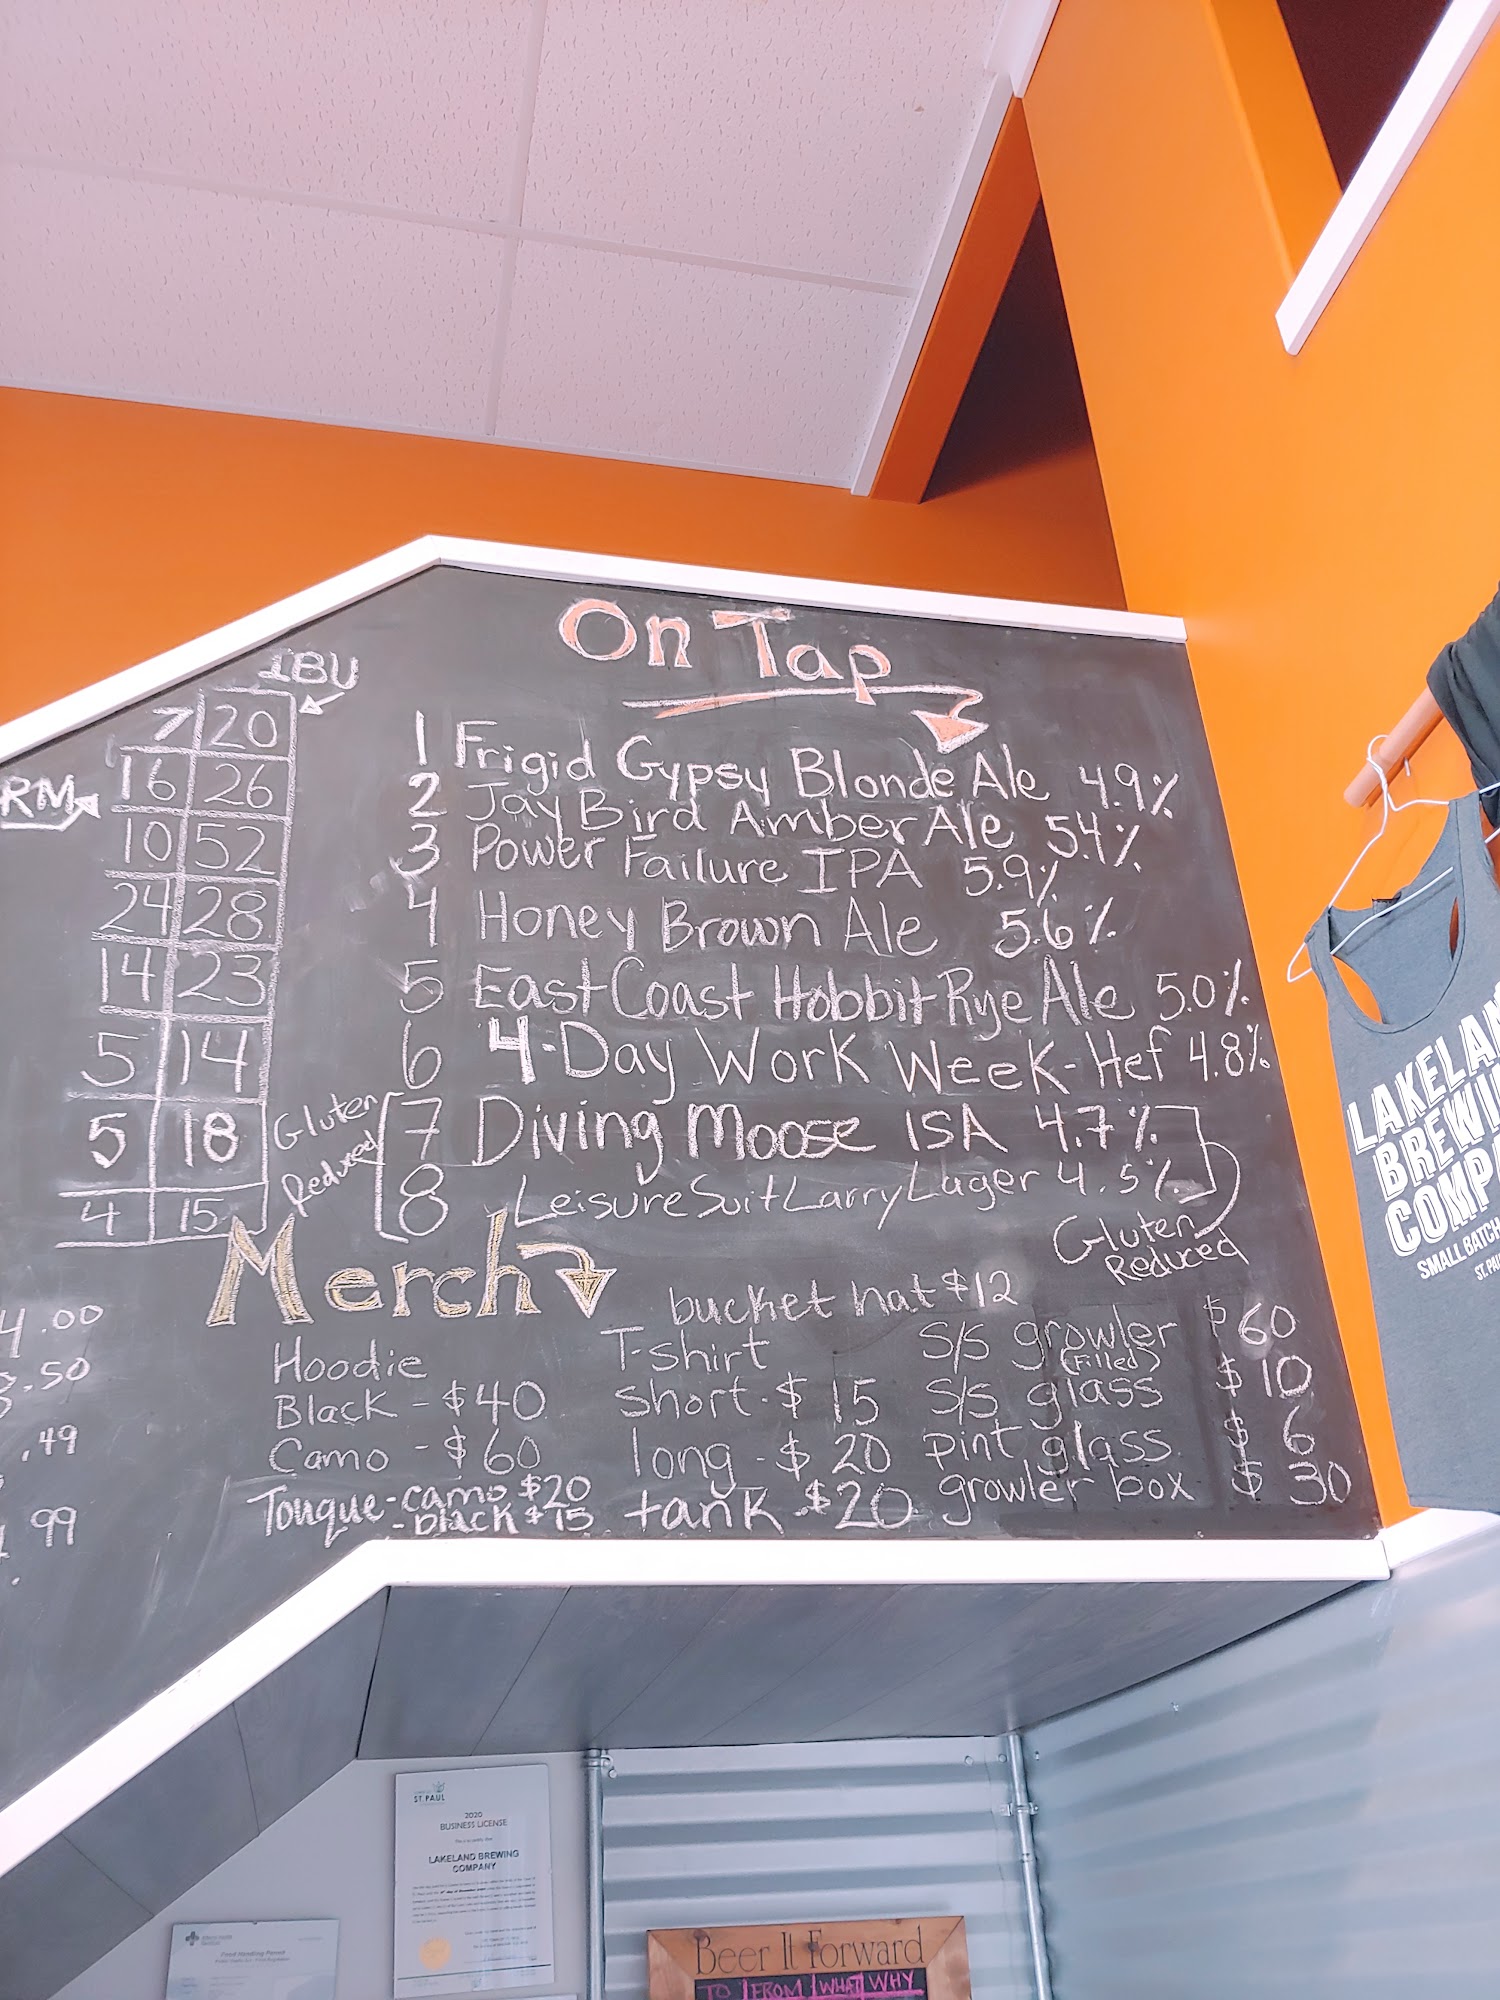 On Tap
IBU
7 20
RM 16 26
10 52
24 28
14 23
5 14
5 18
4 15
1 Frigid Gypsy Blonde Ale 4.9%
2 Jay Bird Amber Ale 5.4%
3 Power Failure IPA 5.9%
4 Honey Brown Ale 5.6%
5 East Coast Hobbit Rye Ale 5.0%
6 4-Day Work Week-Hef 4.8%
Gluten Reduced
7 Diving Moose ISA 4.7%
8 Leisure Suit Larry Lager 4.5%
Gluten
Reduced
Merch
bucket hat $12
Hoodie
Black - $40
Camo - $60
Touque - camo $20
- black $15
T-shirt
short - $15
long - $20
tank - $20
S/S growler $60
(Filled)
S/S glass $10
pint glass $6
growler box $30
4.00
.50
.49
.99
LAKELAN
BREWI
COMP
SMALL BATCH
ST. PA
ST. PAUL
2020
BUSINESS LICENSE
LAKELAND BREWING
COMPANY
Food Handling Permit
Beer It Forward
TO FROM WHAT WHY